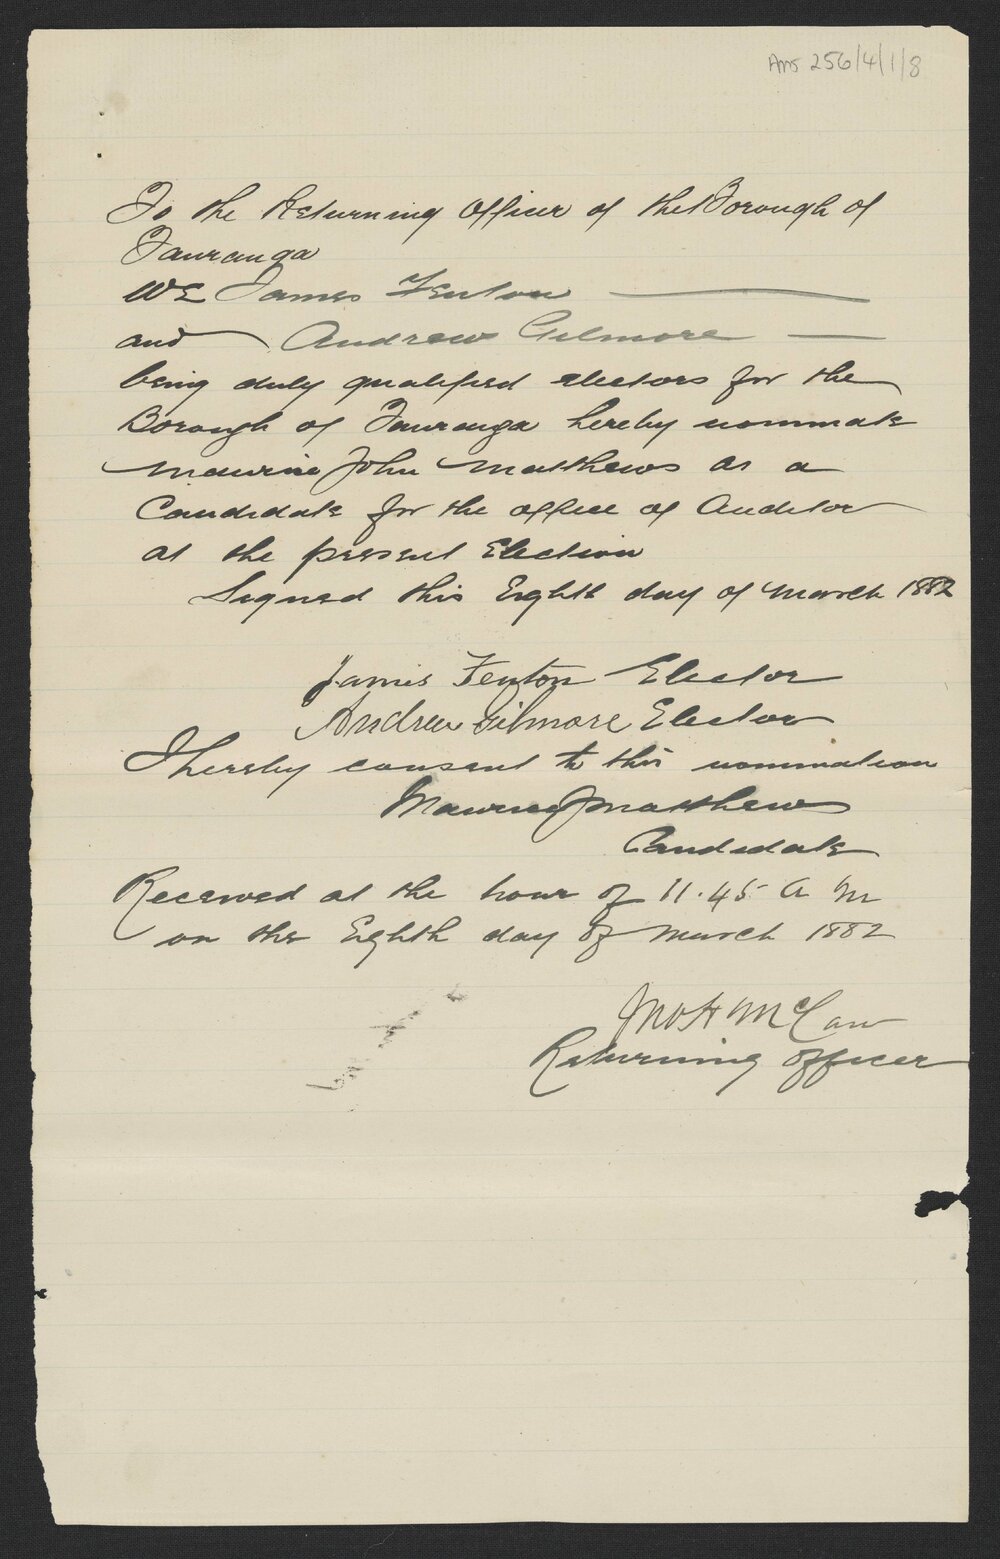 Ams 256/4/1/8
To the Returning Officer of the Borough of
Tauranga
We James Fenton
and Andrew Gilmore
being duly qualified electors for the
Borough of Tauranga hereby nominate
Maurice John Matthews as a
Candidate for the office of Auditor
at the present Election
Signed this Eighth day of March 1882
James Fenton Elector
Andrew Gilmore Elector
I hereby consent to this nomination
Maurice J Matthews
Candidate
Received at the hour of 11.45 A M
on the Eighth day of March 1882
Jno H McCaw
Returning Officer